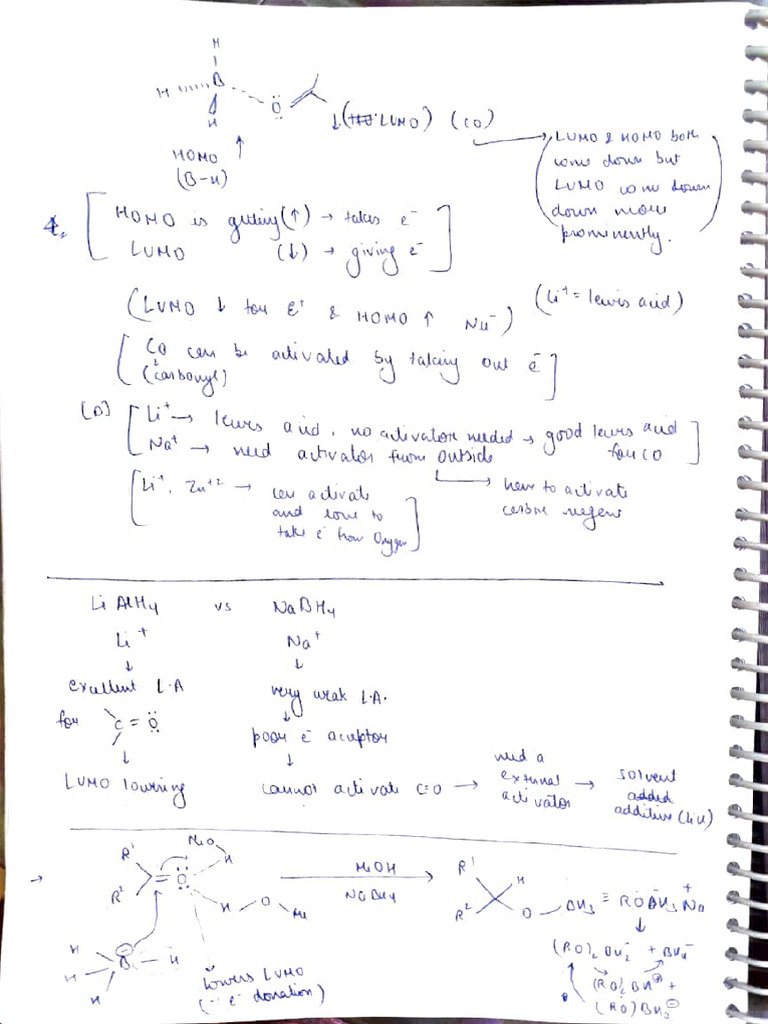 H
H B Ö
H
↓(LUMO) (CO)
HOMO ↑
(B-H)
LUMO & HOMO both
come down but
LUMO come down
down more
prominently.
HOMO is getting (↑) → takes e⁻
LUMO (↓) → giving e⁻
(LUMO ↓ for E⁺ & HOMO ↑ Nu⁻) (Li⁺ = lewis acid)
[CO can be activated by taking out e⁻]
(carbonyl)
[D] [Li⁺ → lewis acid, no activator needed → good lewis acid
Na⁺ → need activator from outside for CO]
[Li⁺, Zn⁺² → can activate
and love to
take e⁻ from Oxygen]
→ have to activate
LiAlH₄ vs NaBH₄
Li⁺ Na⁺
↓ ↓
excellent L.A very weak L.A.
for C=Ö ↓
poor e⁻ acceptor
↓ ↓
LUMO lowering cannot activate C=O → need a
external
activator → solvent
added
additive (LiCl)
MeO
H
→ R¹ R² O
H O Me
MeOH
NaBH₄
R¹ H
R² O BH₃ ≡ ROBH₃ Na⁺
↓
(RO)₂BH₂⁻ + BH₄⁻
(RO)₂BH +
(RO)BH₃⊖
H B⊖ H
H
H
lowers LUMO
(∵ e⁻ donation)